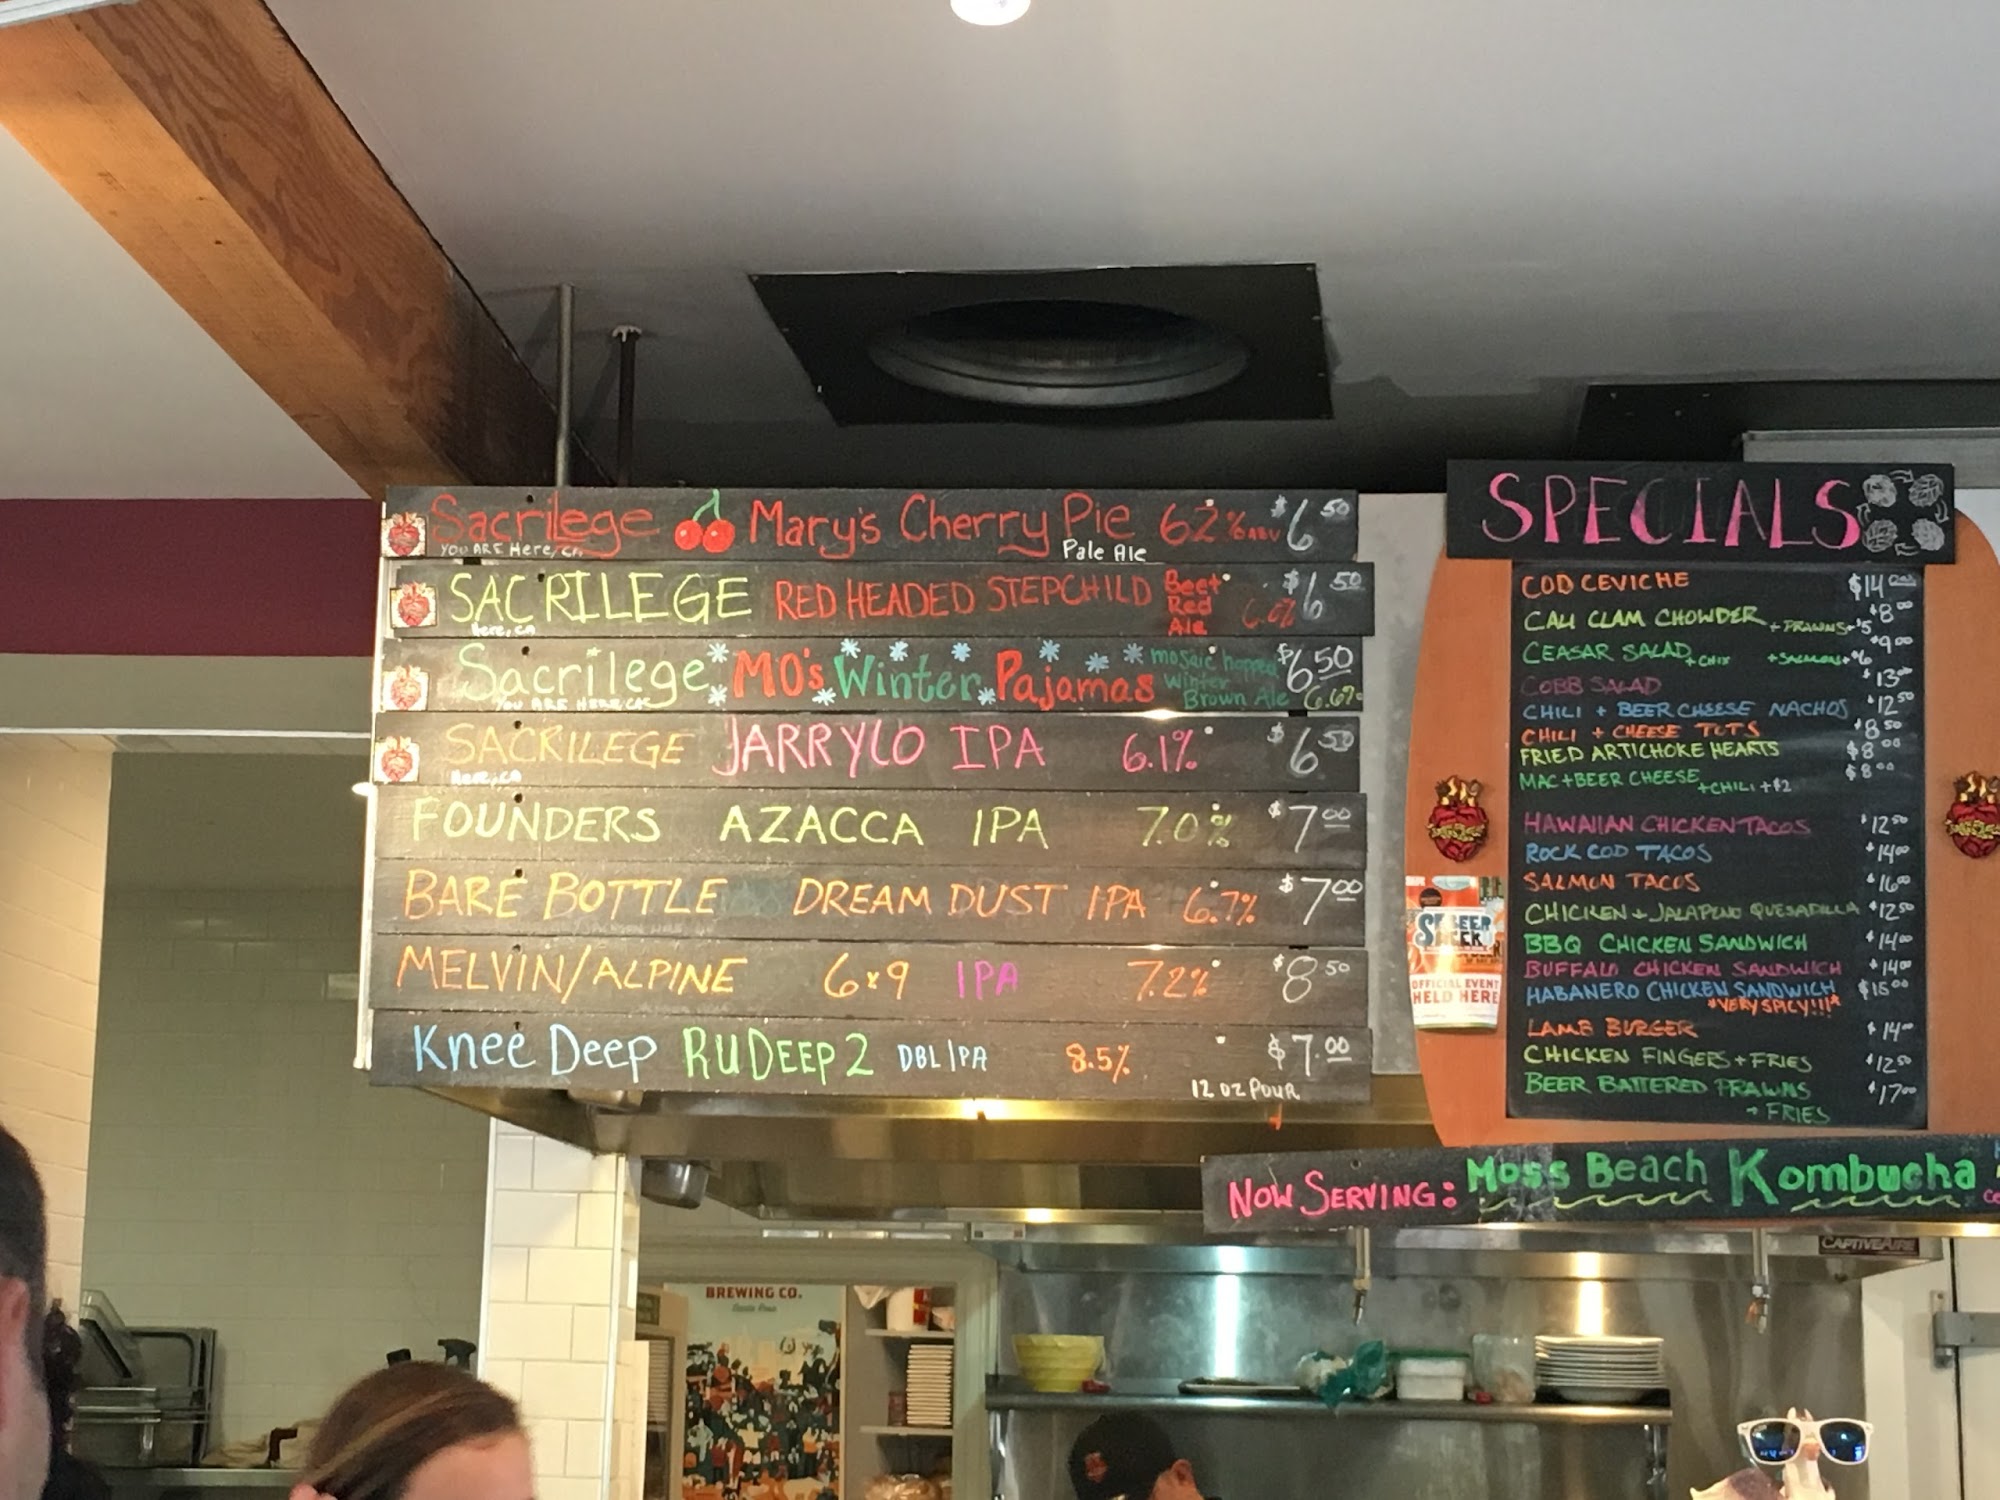 Sacrilege Mary's Cherry Pie 6.2% ABV $6.50
YOU ARE Here, CA
Pale Ale
SACRILEGE RED HEADED STEPCHILD Beet Red Ale 6.0% $6.50
Here, CA
Sacrilege MO's Winter Pajamas mosaic hopped Winter Brown Ale $6.50 6.6%
YOU ARE HERE, CA
SACRILEGE JARRYLO IPA 6.1% $6.50
Here, CA
FOUNDERS AZACCA IPA 7.0% $7.00
BARE BOTTLE DREAM DUST IPA 6.7% $7.00
MELVIN/ALPINE 6x9 IPA 7.2% $8.50
Knee Deep RUDEEP2 DBL IPA 8.5% $7.00
12 OZ POUR
SPECIALS
COD CEVICHE $14.00
CALI CLAM CHOWDER + PRAWNS +$5 $8.00
CEASAR SALAD + CHIX + SALMON +$6 $9.00
COBB SALAD $13.00
CHILI + BEER CHEESE NACHOS $12.50
CHILI + CHEESE TOTS $8.50
FRIED ARTICHOKE HEARTS $8.00
MAC + BEER CHEESE + CHILI +$2 $8.00
HAWAIIAN CHICKEN TACOS $12.50
ROCK COD TACOS $14.00
SALMON TACOS $16.00
CHICKEN + JALAPENO QUESADILLA $12.50
BBQ CHICKEN SANDWICH $14.00
BUFFALO CHICKEN SANDWICH $14.00
HABANERO CHICKEN SANDWICH $15.00
*VERY SPICY!!!*
LAMB BURGER $14.00
CHICKEN FINGERS + FRIES $12.50
BEER BATTERED PRAWNS $17.00
+ FRIES
SF BEER WEEK
OFFICIAL EVENT
HELD HERE
NOW SERVING: Moss Beach Kombucha
CAPTIVEAIRE
BREWING CO.
Santa Rosa